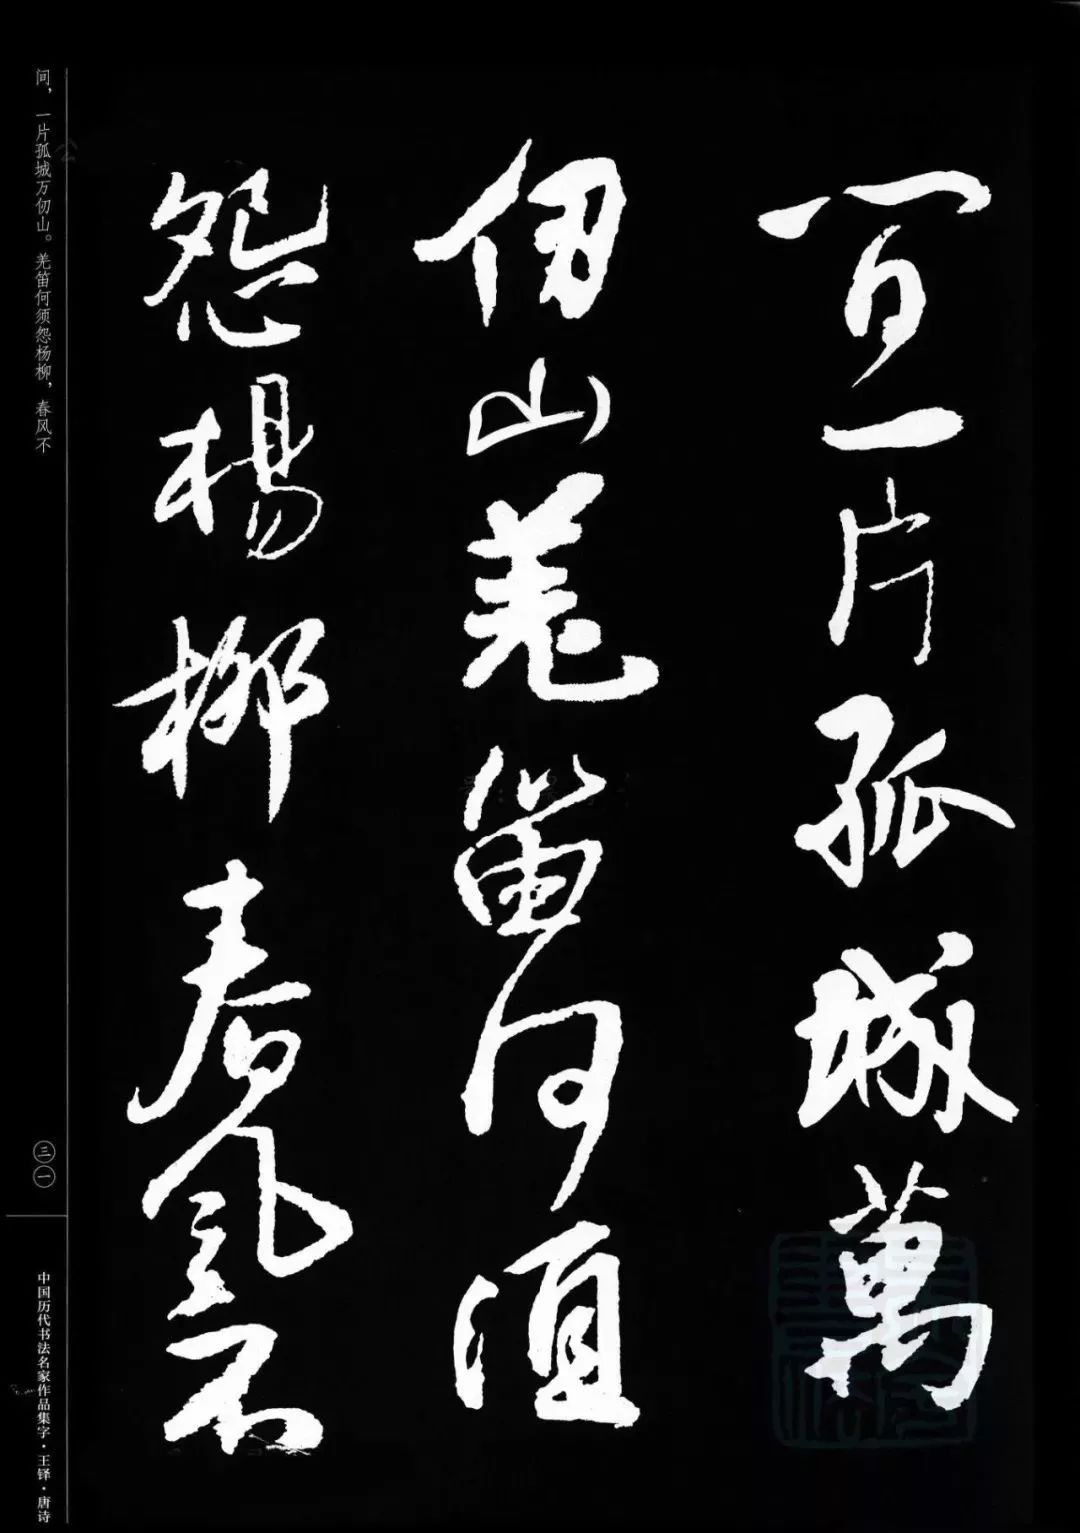 間一片孤城萬
仞山羌笛何須
怨楊柳春風不
间，一片孤城万仞山。羌笛何须怨杨柳，春风不
三一
中国历代书法名家作品集字·王铎·唐诗